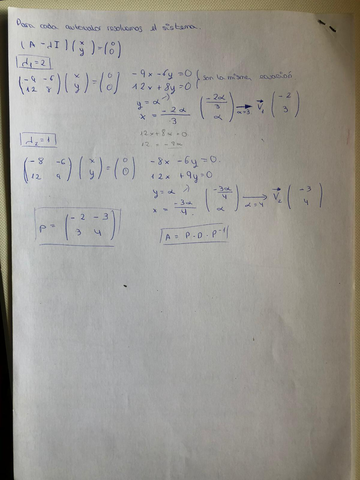 Para cada autovalor resolvemos el sistema.
(A - λI) (x y) = (0 0)
λ₁ = 2
(-9 -6 12 8) (x y) = (0 0) -9x - 6y = 0 } son la misma ecuación
12x + 8y = 0
y = α
x = -2α/3 (-2α/3 α) → α=3 V₁ (-2 3)
12x + 8α = 0
12 = -8α
λ₂ = 1
(-8 -6 12 9) (x y) = (0 0) -8x - 6y = 0.
12x + 9y = 0
y = α
x = -3α/4 (-3α/4 α) → α=4 V₂ (-3 4)
P = (-2 -3 3 4) A = P · D · P⁻¹